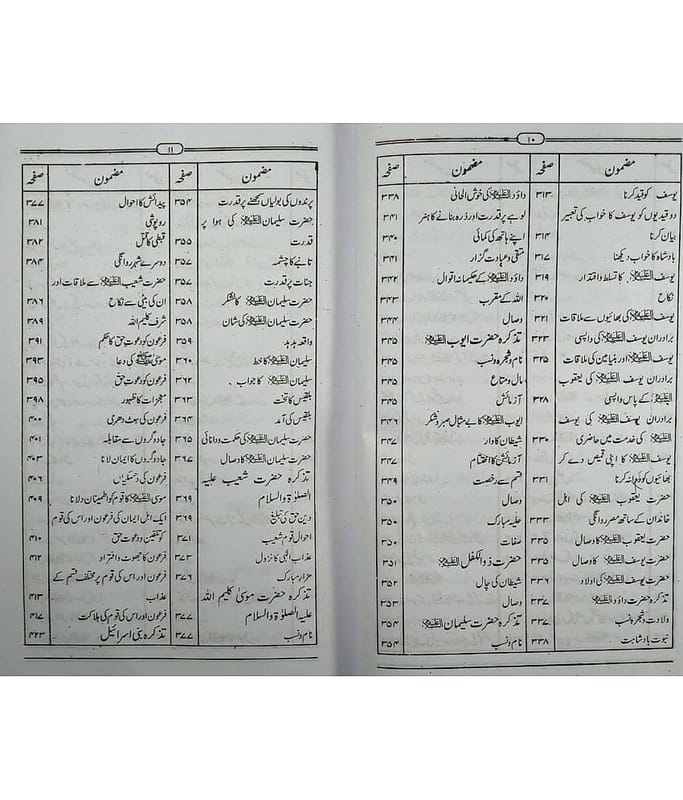 ۱۰
مضمون صفحہ
یوسف کو قید کرنا ۳۱۳
دو قیدیوں کو یوسف کا خواب کی تعبیر
بیان کرنا ۳۱۴
بادشاہ کا خواب دیکھنا ۳۱۷
یوسف علیہ السلام کا تسلط و اقتدار ۳۱۹
نکاح ۳۲۰
یوسف علیہ السلام کی بھائیوں سے ملاقات ۳۲۱
برادران یوسف علیہ السلام کی واپسی ۳۲۳
یوسف علیہ السلام اور بنیامین کی ملاقات ۳۲۵
برادران یوسف علیہ السلام کی یعقوب
علیہ السلام کے پاس واپسی ۳۲۸
برادران یوسف علیہ السلام کی یوسف
علیہ السلام کی خدمت میں حاضری ۳۳۰
یوسف علیہ السلام کا اپنی قمیض دے کر
بھائیوں کو روانہ کرنا ۳۳۱
حضرت یعقوب علیہ السلام کی اہل
خاندان کے ساتھ مصر روانگی ۳۳۳
حضرت یعقوب علیہ السلام کا وصال ۳۳۵
حضرت یوسف علیہ السلام کا وصال ۳۳۵
حضرت یوسف علیہ السلام کی اولاد ۳۳۶
تذکرہ حضرت داؤد علیہ السلام ۳۳۷
ولادت و شجرہ نسب ۳۳۷
نبوت بادشاہت ۳۳۸
مضمون صفحہ
داؤد علیہ السلام کی خوش الحانی ۳۳۸
لوہے پر قدرت اور ذرہ بنانے کا ہنر ۳۴۱
اپنے ہاتھ کی کمائی ۳۴۰
متقی و عبادت گزار ۳۴۱
داؤد علیہ السلام کے حکیمانہ اقوال ۳۴۲
اللہ کے مقرب ۳۴۳
وصال ۳۴۴
تذکرہ حضرت ایوب علیہ السلام ۳۴۵
نام و شجرہ نسب ۳۴۵
مال و متاع ۳۴۵
آزمائش ۳۴۵
ایوب علیہ السلام کا بے مثال صبر و شکر ۳۴۶
شیطان کا وار ۳۴۷
آزمائش کا اختتام ۳۴۷
قسم سے رخصت ۳۴۹
وصال ۳۵۰
حلیہ مبارک ۳۵۰
صفات ۳۵۰
حضرت ذوالکفل علیہ السلام ۳۵۱
شیطان کی چال ۳۵۲
وصال ۳۵۳
تذکرہ حضرت سلیمان علیہ السلام ۳۵۴
نام و نسب ۳۵۴
۱۱
مضمون صفحہ
پرندوں کی بولیاں سمجھنے پر قدرت ۳۵۴
حضرت سلیمان علیہ السلام کی ہوا پر
قدرت ۳۵۵
تانبے کا چشمہ ۳۵۷
جنات پر قدرت ۳۵۷
حضرت سلیمان علیہ السلام کا لشکر ۳۵۸
حضرت سلیمان علیہ السلام کی شان ۳۵۸
واقعہ ہدہد ۳۵۹
سلیمان علیہ السلام کا خط ۳۶۰
سلیمان علیہ السلام کا جواب ۳۶۲
بلقیس کا تخت ۳۶۳
بلقیس کی آمد
حضرت سلیمان علیہ السلام کی حکمت و دانائی ۳۶۵
حضرت سلیمان علیہ السلام کا وصال ۳۶۷
تذکرہ حضرت شعیب علیہ
الصلوٰۃ والسلام ۳۶۹
دین حق کی تبلیغ ۳۶۹
احوال قوم شعیب ۳۷۱
عذاب الٰہی کا نزول ۳۷۳
مزار مبارک ۳۷۶
تذکرہ حضرت موسیٰ کلیم اللہ
علیہ الصلوٰۃ والسلام ۳۷۷
نام و نسب ۳۷۷
مضمون صفحہ
پیدائش کا احوال ۳۷۷
روپوشی ۳۸۱
قبطی کا قتل ۳۸۲
دوسرے شہر روانگی ۳۸۴
حضرت شعیب علیہ السلام سے ملاقات اور
ان کی بیٹی سے نکاح ۳۸۶
شرف کلیم اللہ ۳۸۹
فرعون کو دعوت حق کا حکم ۳۹۱
موسیٰ علیہ السلام کی دعا ۳۹۳
فرعون کو دعوت حق ۳۹۵
معجزات کا ظہور ۳۹۸
فرعون کی ہٹ دھری ۴۰۰
جادوگروں سے مقابلہ ۴۰۱
جادوگروں کا ایمان لانا ۴۰۳
فرعون کی دھمکیاں ۴۰۶
موسیٰ علیہ السلام کا قوم کو اطمینان دلانا ۴۰۹
ایک اہل ایمان کی فرعون اور اس کی قوم
کو تلقین و دعوت حق ۴۱۰
فرعون کا جھوٹ و افتراء ۴۱۲
فرعون اور اس کی قوم پر مختلف قسم کے
عذاب ۴۱۳
فرعون اور اس کی قوم کی ہلاکت ۴۱۷
تذکرہ بنی اسرائیل ۴۲۳